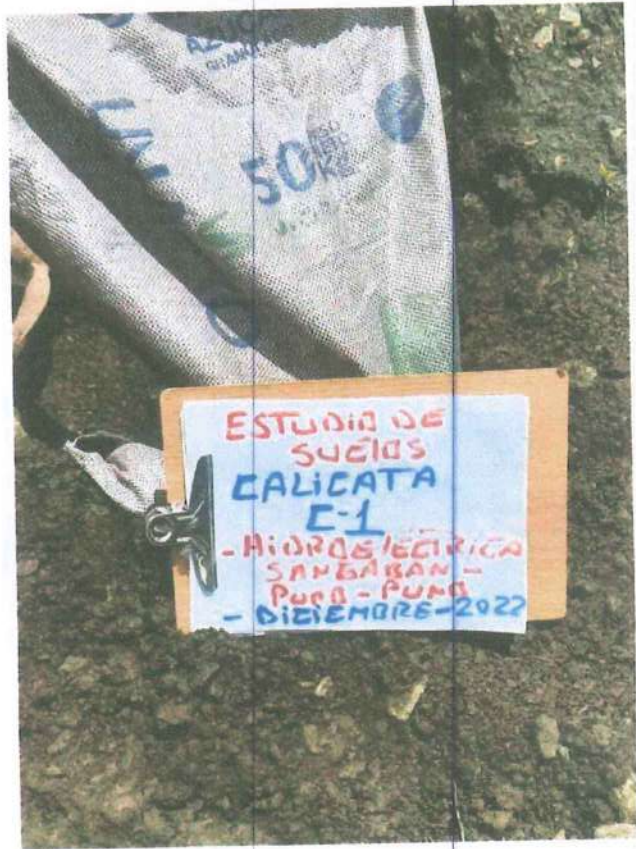 AZUCAR
50 KG
ESTUDIO DE
SUELOS
CALICATA
C-1
- HIDROELECTRICA
SANGABAN -
PUNO - PUNO
- DICIEMBRE - 2022